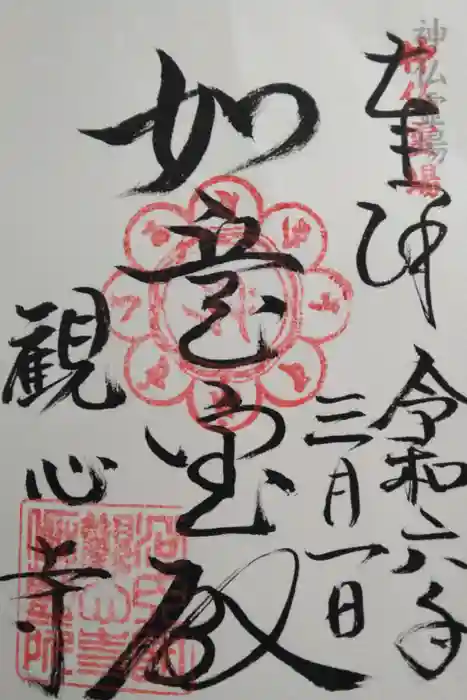 神仏霊場
奉拝
令和六年
三月一日
如意宝殿
観心寺